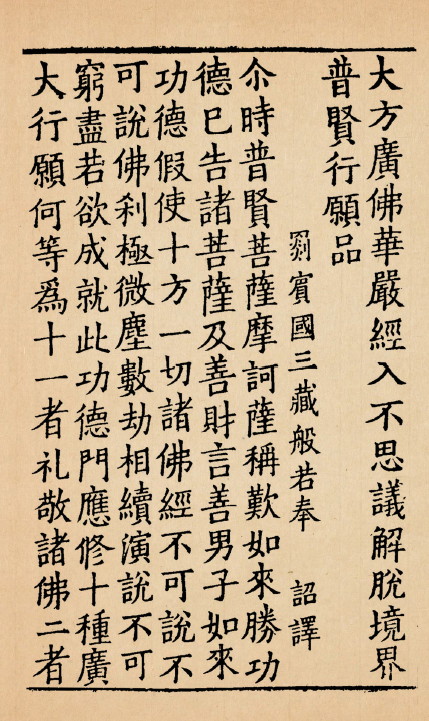 大方廣佛華嚴經入不思議解脫境界
普賢行願品
罽賓國三藏般若奉　詔譯
尒時普賢菩薩摩訶薩稱歎如來勝功
德已告諸菩薩及善財言善男子如來
功德假使十方一切諸佛經不可說不
可說佛剎極微塵數劫相續演說不可
窮盡若欲成就此功德門應修十種廣
大行願何等爲十一者礼敬諸佛二者